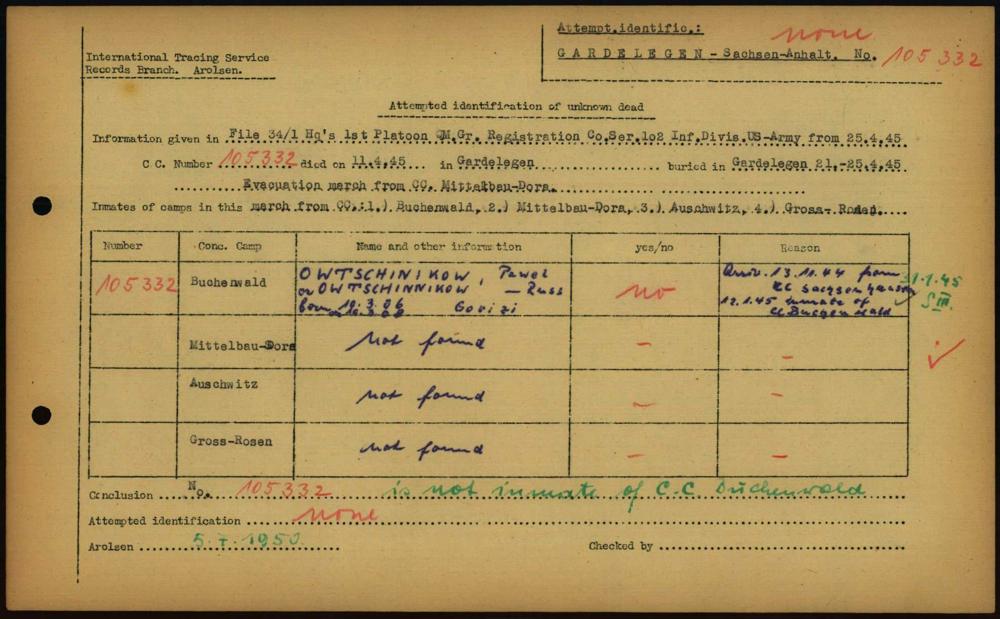 Attempt.identific.: none
GARDELEGEN - Sachsen-Anhalt. No. 105 332
International Tracing Service
Records Branch. Arolsen.
Attempted identification of unknown dead
Information given in File 34/1 Hq's 1st Platoon QM.Gr. Registration Co.Ser.1o2 Inf.Divis.US-Army from 25.4.45
C C. Number 105332 died on 11.4.45 in Gardelegen buried in Gardelegen 21.-25.4.45
Evacuation march from CC. Mittelbau-Dora.
Inmates of camps in this march from CC.:1.) Buchenwald, 2.) Mittelbau-Dora, 3.) Auschwitz, 4.) Gross-Rosen.
Number Conc. Camp Name and other information yes/no Reason
105332 Buchenwald OWTSCHINIKOW, Pawel no Arriv. 13.11.44 from 31.1.45
or OWTSCHINNIKOW - Russ CC Sachsenhausen S III.
born 10.3.06 12.1.45 inmate of
Gorizi CC Buchenwald
Mittelbau-Dora not found - -
Auschwitz not found - -
Gross-Rosen not found - -
Conclusion No. 105332 is not inmate of C.C. Buchenwald
Attempted identification none
Arolsen 5. I. 1950. Checked by